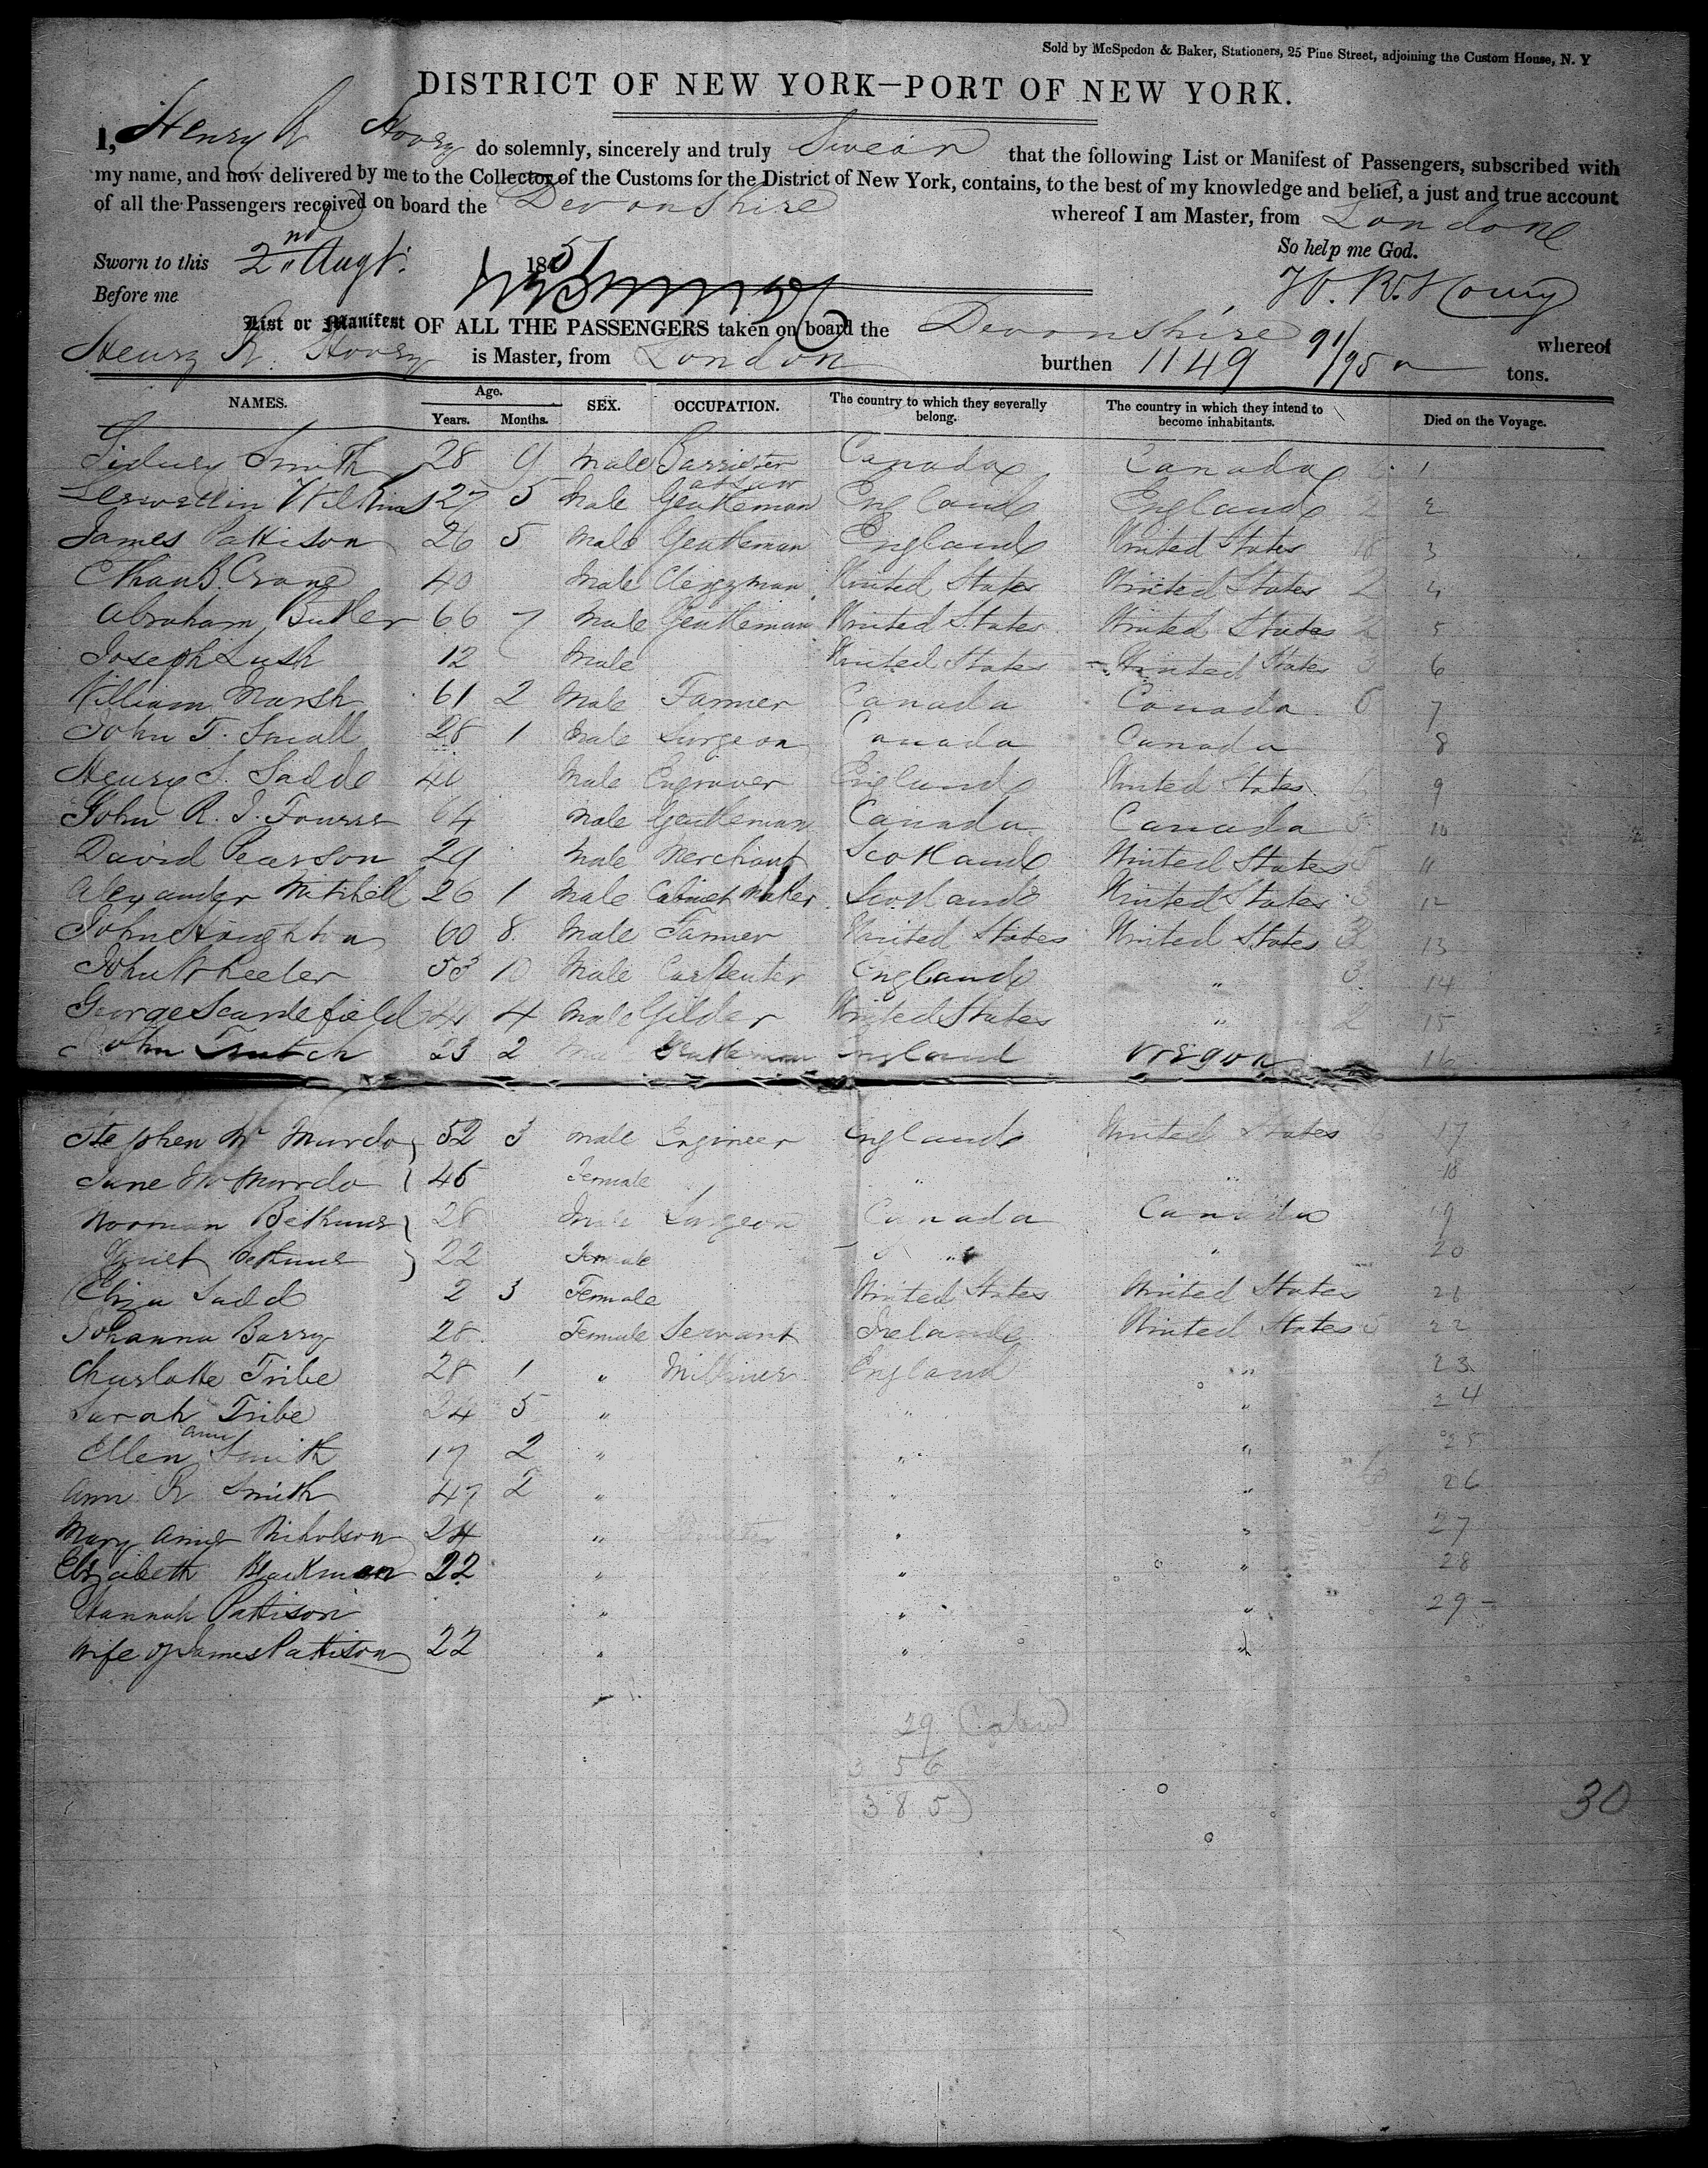 Sold by McSpedon & Baker, Stationers, 25 Pine Street, adjoining the Custom House, N. Y
DISTRICT OF NEW YORK—PORT OF NEW YORK.
I, Henry R Hovey do solemnly, sincerely and truly Swear that the following List or Manifest of Passengers, subscribed with
my name, and now delivered by me to the Collector of the Customs for the District of New York, contains, to the best of my knowledge and belief, a just and true account
of all the Passengers received on board the Devonshire whereof I am Master, from London
So help me God.
Sworn to this 2nd Augt. 1851
H. R. Hovey
Before me
List or Manifest OF ALL THE PASSENGERS taken on board the Devonshire whereof
Henry R. Hovey is Master, from London burthen 1149 91/95 tons.
NAMES. Age. Years. Months. SEX. OCCUPATION. The country to which they severally belong. The country in which they intend to become inhabitants. Died on the Voyage.
Sidney Smith 28 9 Male Barrister at Law Canada Canada 1
Lewellin Wilkins 27 5 Male Gentleman England England 2 2
James Pattison 26 5 Male Gentleman England United States 3
B. Crane 40 Male Clergyman United States United States 2 4
Abraham Butler 66 7 Male Gentleman United States United States 2 5
Joseph Lush 12 Male United States United States 3 6
William Marsh 61 2 Male Farmer Canada Canada 6 7
John T. Small 28 1 Male Surgeon Canada Canada 8
Henry S. Sadd 40 Male Engraver England United States 9
John R. J. 64 Male Gentleman Canada Canada 5 10
David Pearson 29 Male Merchant Scotland United States 5 11
Alexander Mitchell 26 1 Male Cabinet Maker Scotland United States 3 12
John Houghton 60 8 Male Farmer United States United States 13
John Wheeler 53 10 Male Carpenter England " 3 14
George Scandefield 4 Male Gilder United States " 2 15
John Trutch 23 2 Gentleman England Oregon 16
Stephen Mc Murdo 52 3 Male Engineer England United States 17
Jane Mc Murdo 45 Female " " 18
Norman Bethune 28 Male Surgeon Canada Canada 19
Bethune 22 Female " " 20
Eliza Sadd 2 3 Female United States United States 21
Johanna Barry 28 Female Servant Ireland United States 5 22
Charlotte Tribe 28 1 " Milliner England " 23
Sarah Tribe 24 5 " " " 24
Ellen Ann Smith 17 2 " " " 25
Ann R Smith 47 2 " " " 26
Mary Nicholson 24 " " " 27
Elizabeth Blackman 22 " " " 28
Hannah Pattison " " " 29
Wife of James Pattison 22 " " "
29 Cabin
356
385
30